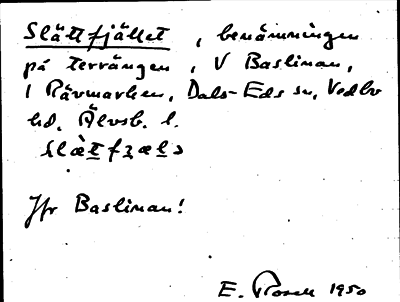 Slättfjället, benämningen
på terrängen, V Baslinan,
i Rävmarken, Dals-Eds sn, Vedbo
hd. Älvsb. l.
Jfr Baslinan!
E. Rosell 1950